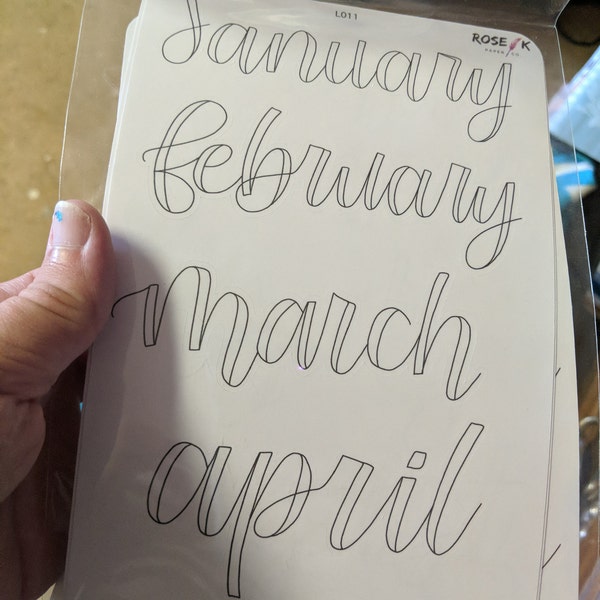 L011
ROSE K
PAPER CO.
January
february
march
april